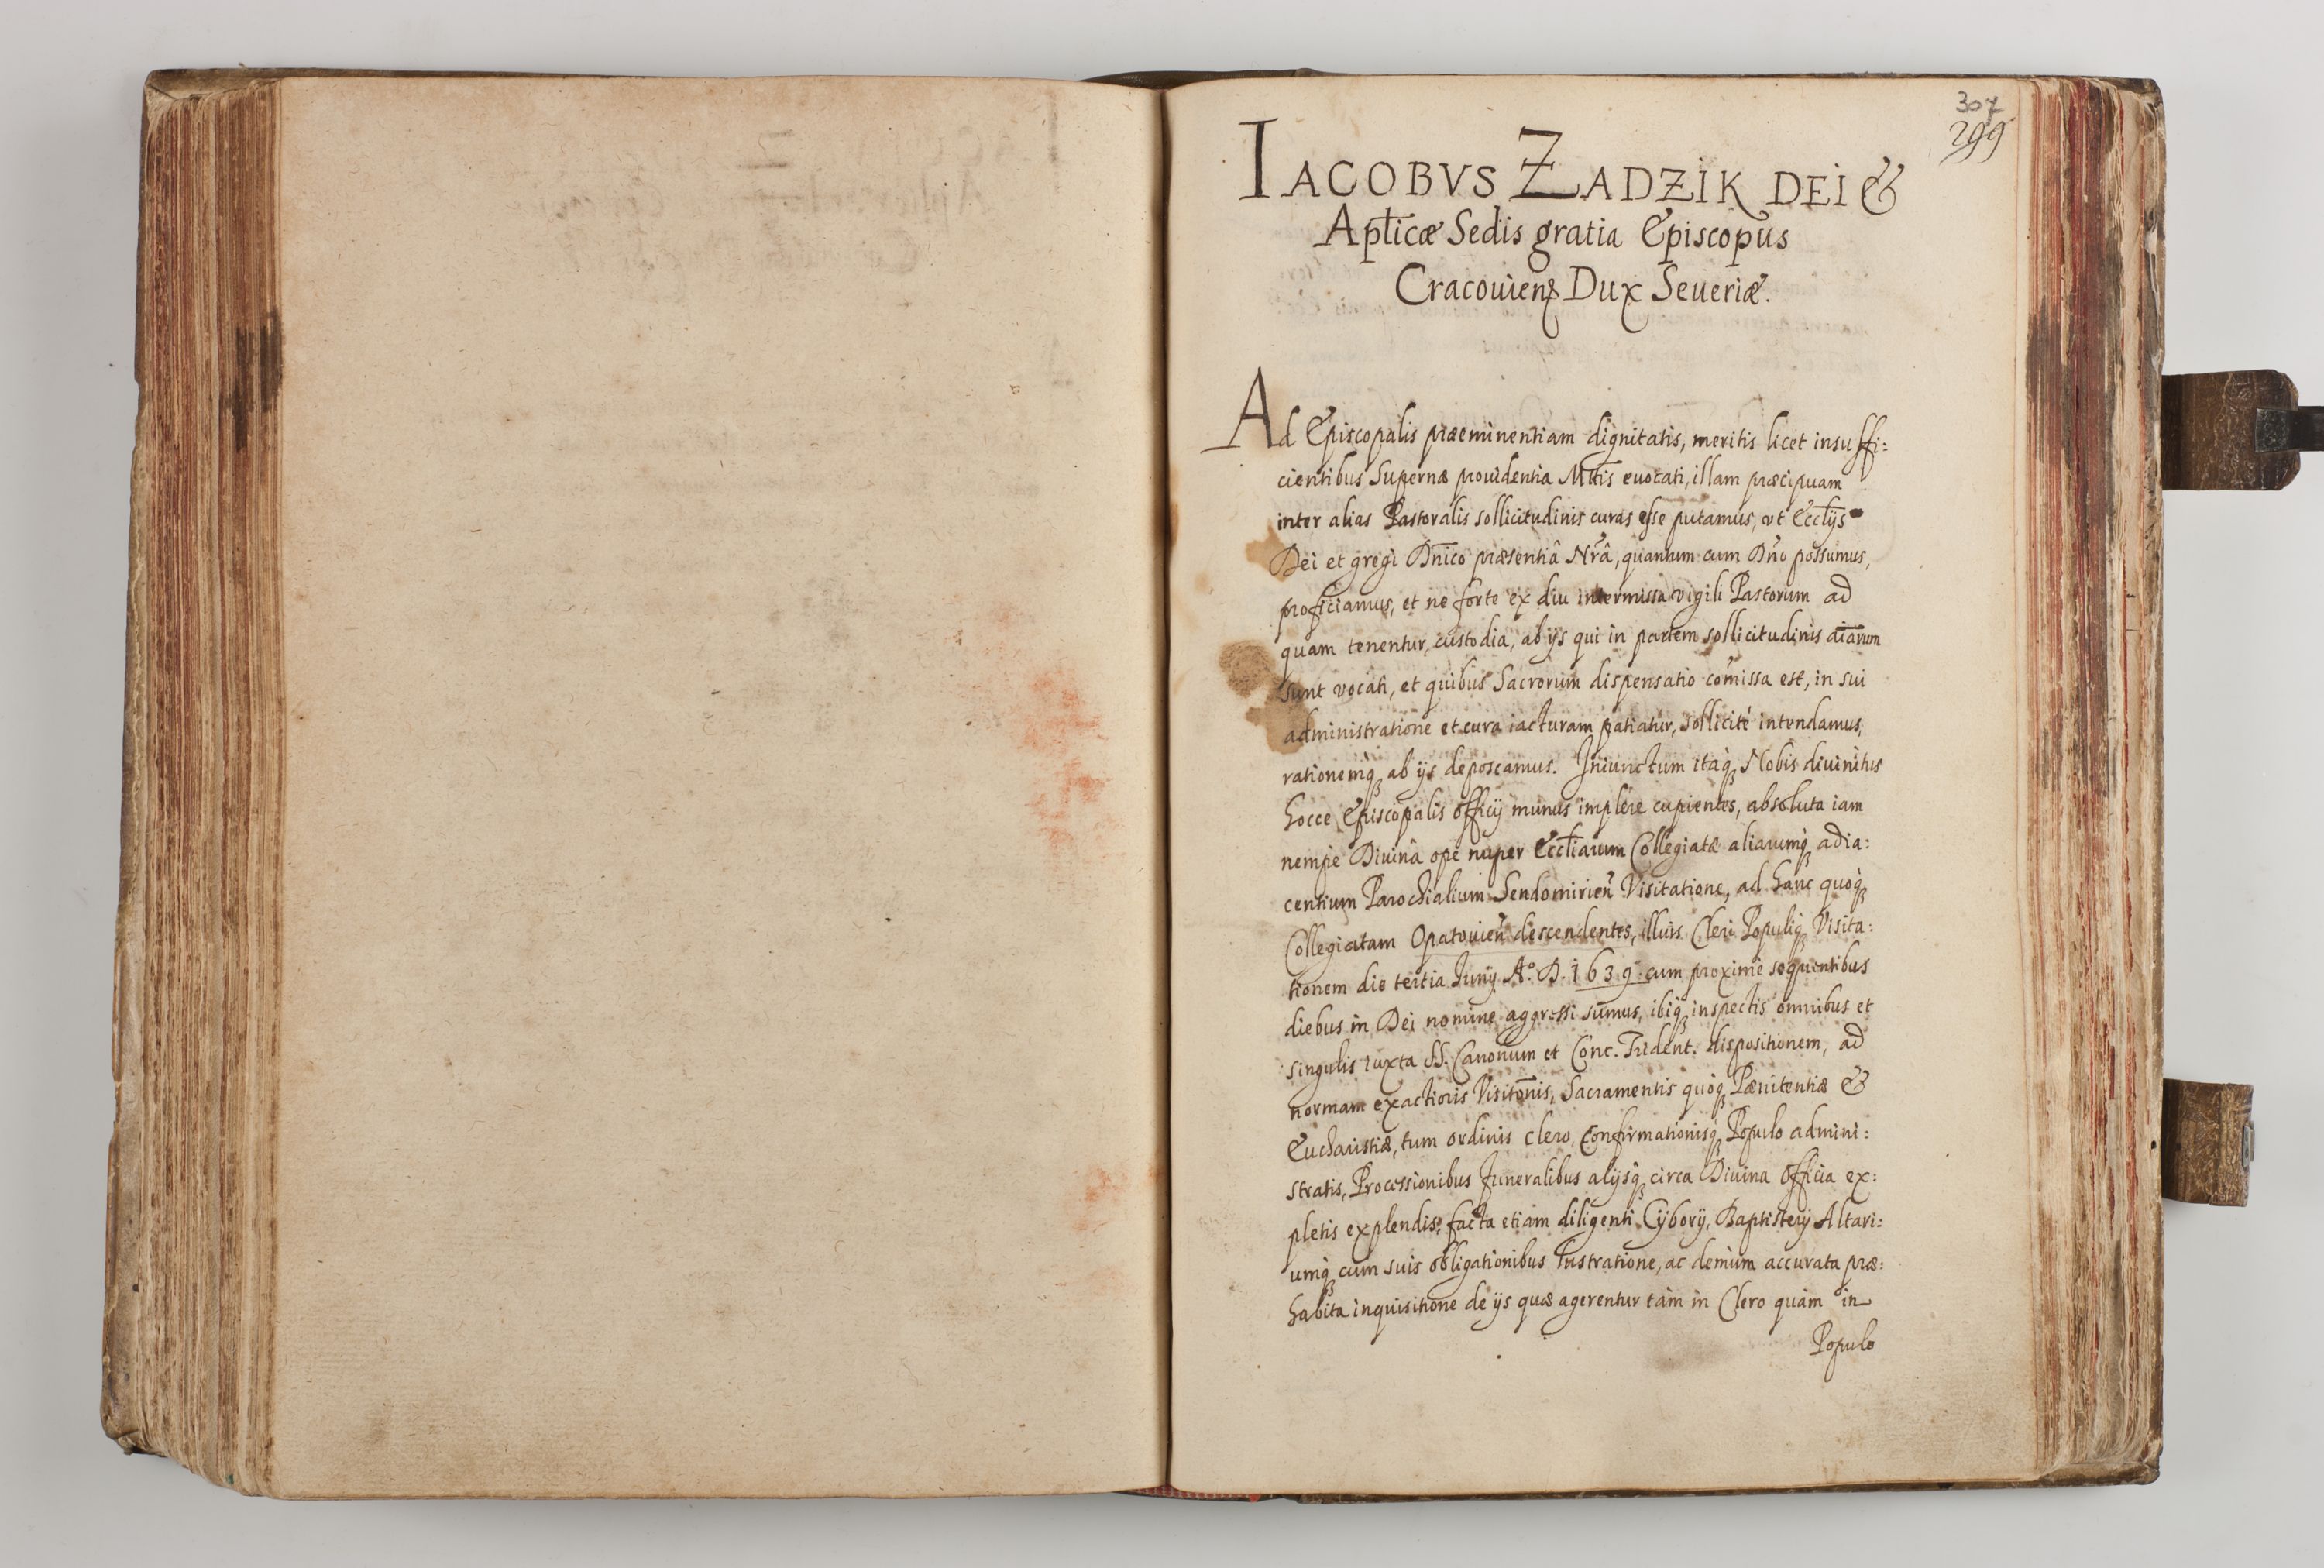 307
299
IACOBVS ZADZIK DEI &
Aplicæ Sedis gratia Episcopus
Cracouien Dux Seueriæ.
Ad Episcopalis præeminentiam dignitatis, meritis licet insuffi:
cientibus Supernæ prouidentia Mttis euocati, illam præcipuam
inter alias Pastoralis sollicitudinis curas esse putamus, vt Eccliis
Dei et gregi Dnico præsentiâ Nrâ, quantum cum Dno possumus,
proficiamus, et ne forte ex diu intermissa vigili Pastorum ad
quam tenentur, custodia, ab ijs qui in partem sollicitudinis aiarum
sunt vocati, et quibus Sacrorum dispensatio comissa est, in sui
administratione et cura iacturam patiatur, sollicitè intendamus,
rationemq ab ijs deposcamus. Iniunctum itaq Nobis diuinitus
hocce Episcopalis officij munus implere cupientes, absoluta iam
nempe Diuinâ ope nuper Eccliarum Collegiatæ aliarumq adia:
centium Parochialium Sendomirien Visitatione, ad hanc quoq
Collegiatam Opatouien descendentes, illius Cleri Populiq Visita:
tionem die tertia Iunij Aº. D. 1639 cum proximè sequentibus
diebus in Dei nomine aggressi sumus, ibiq inspectis omnibus et
singulis iuxta SS. Canonum et Conc. Trident. dispositionem, ad
normam exactioris Visitonis, Sacramentis quoq Pænitentiæ &
Eucharistiæ, tum ordinis clero, Confirmationisq Populo admini:
stratis, Processionibus funeralibus alijsq circa Diuina officia ex:
pletis explendis, facta etiam diligenti Cyborij, Baptisterij Altari:
umq cum suis obligationibus lustratione, ac demum accurata præ:
habita inquisitione de ijs quæ agerentur tàm in Clero quàm in
Populo